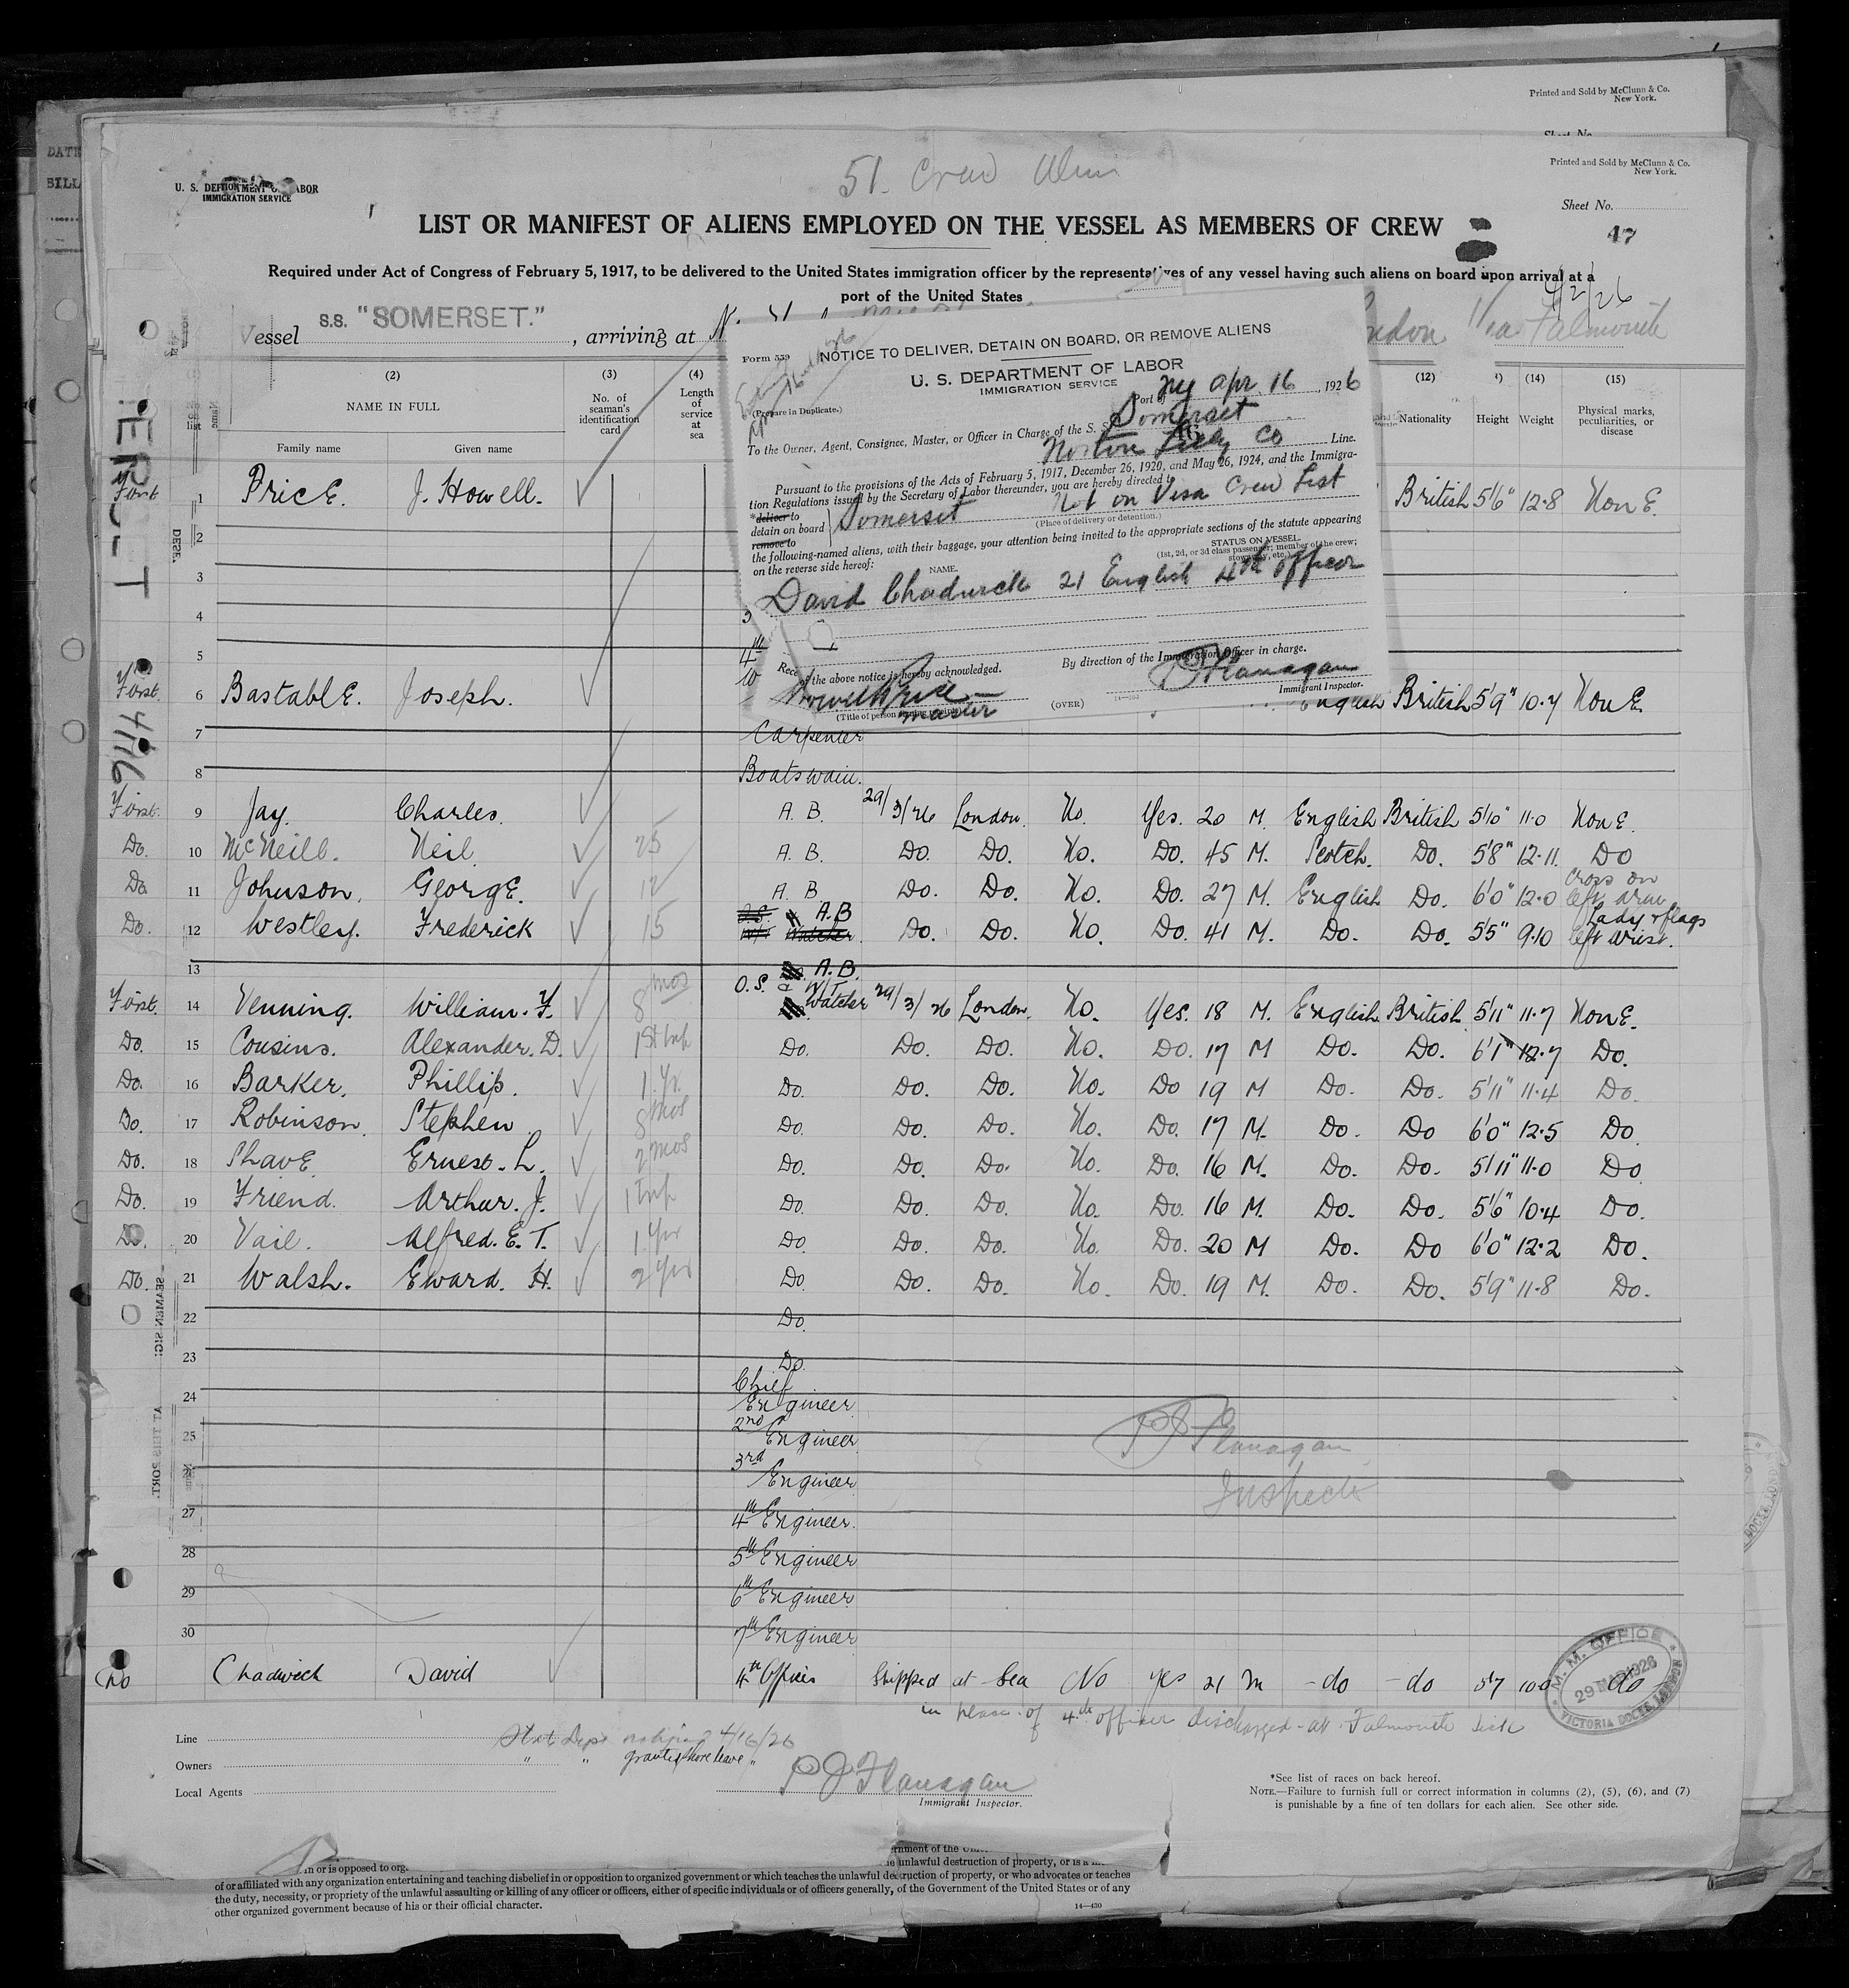 Printed and Sold by McClunn & Co.
New York.
Printed and Sold by McClunn & Co.
New York.
DATE
BILL
51. Crew
U. S. DEPARTMENT OF LABOR
IMMIGRATION SERVICE
Sheet No.
47
LIST OR MANIFEST OF ALIENS EMPLOYED ON THE VESSEL AS MEMBERS OF CREW
Required under Act of Congress of February 5, 1917, to be delivered to the United States immigration officer by the representatives of any vessel having such aliens on board upon arrival at a
port of the United States
4/2/26
Vessel S.S. "SOMERSET." , arriving at
Via Falmouth
Form 559
NOTICE TO DELIVER, DETAIN ON BOARD, OR REMOVE ALIENS
U. S. DEPARTMENT OF LABOR
IMMIGRATION SERVICE
(Prepare in Duplicate.)
Port of NY Apr. 16, 1926
To the Owner, Agent, Consignee, Master, or Officer in Charge of the S. S. Somerset
Norton Lilly Co Line.
Pursuant to the provisions of the Acts of February 5, 1917, December 26, 1920, and May 26, 1924, and the Immigra-
tion Regulations issued by the Secretary of Labor thereunder, you are hereby directed to
*deliver to
detain on board Somerset Not on Visa Crew List
remove to
(Place of delivery or detention.)
the following-named aliens, with their baggage, your attention being invited to the appropriate sections of the statute appearing
on the reverse side hereof:
NAME.
STATUS ON VESSEL.
(1st, 2d, or 3d class passenger; member of the crew;
stowaway, etc.)
David Chadwick 21 English 4th Officer
Receipt of the above notice is hereby acknowledged.
By direction of the Immigration Officer in charge.
P J Flanagan
Immigrant Inspector.
J Howell Price
master
(Title of person signing receipt)
(OVER)
(2) (3) (4) (12) (14) (15)
No. on list
NAME IN FULL
Family name Given name
No. of seaman's identification card
Length of service at sea
Nationality Height Weight
Physical marks, peculiarities, or disease
First 1 Price. J. Howell. British 5'6" 12·8 None.
2
3
4
5
First. 6 Bastable. Joseph. English British 5'9" 10·7 None
7 Carpenter
8 Boatswain.
First. 9 Jay. Charles. A. B. 29/3/26 London. No. Yes. 20 M. English British 5'10" 11·0 None.
Do. 10 McNeill. Neil. 25 A. B. Do. Do. No. Do. 45 M. Scotch. Do. 5'8" 12·11. Do
Do 11 Johnson. George. 12 A. B Do. Do. No. Do. 27 M. English Do. 6'0" 12·0 Cross on left arm
Do. 12 Westley. Frederick 15 A.B Do. Do. No. Do. 41 M. Do. Do. 5'5" 9·10 Lady & flags left wrist.
13 A.B.
First. 14 Venning. William. F. 8 mos O.S. & W/T Watcher 29/3/26 London. No. Yes. 18 M. English British 5'11" 11·7 None.
Do. 15 Cousins. Alexander. D. 1st trip Do. Do. Do. No. Do. 17 M Do. Do. 6'1" 12·7 Do.
Do. 16 Barker. Phillip. 1 yr. Do. Do. Do. No. Do 19 M Do. Do. 5'11" 11·4 Do.
Do. 17 Robinson. Stephen 8 mos Do. Do. Do. No. Do. 17 M. Do. Do 6'0" 12·5 Do
Do. 18 Shave Ernest. L. 2 mos Do. Do. Do. No. Do. 16 M. Do. Do. 5'11" 11·0 Do
Do. 19 Friend. Arthur. J. 1 trip Do. Do. Do. No. Do. 16 M. Do. Do. 5'6" 10·4 Do.
Do. 20 Vail. Alfred. E. T. 1 yr Do. Do. Do. No. Do. 20 M Do. Do 6'0" 12·2 Do.
Do. 21 Walsh. Eward. H. 2 yrs Do Do. Do. No. Do 19 M. Do. Do. 5'9" 11·8 Do.
22 Do.
23 Do.
24 Chief Engineer
25 2nd Engineer
26 3rd Engineer
27 4th Engineer.
28 5th Engineer
29 6th Engineer
30 7th Engineer
P J Flanagan
Inspector
No Chadwick David 4th Officer Shipped at Sea No yes 21 m do do 5'7 10·0 do
in place of 4th officer discharged at Falmouth sick
M. M. OFFICE
29 MAR 1926
VICTORIA DOCKS LONDON
Line
State Dept notified 4/16/26
Owners
" " granted shore leave "
Local Agents
P J Flanagan
Immigrant Inspector.
*See list of races on back hereof.
NOTE.—Failure to furnish full or correct information in columns (2), (5), (6), and (7)
is punishable by a fine of ten dollars for each alien. See other side.
in or is opposed to org.
unlawful destruction of property, or is a
of or affiliated with any organization entertaining and teaching disbelief in or opposition to organized government or which teaches the unlawful destruction of property, or who advocates or teaches
the duty, necessity, or propriety of the unlawful assaulting or killing of any officer or officers, either of specific individuals or of officers generally, of the Government of the United States or of any
other organized government because of his or their official character.
14—430